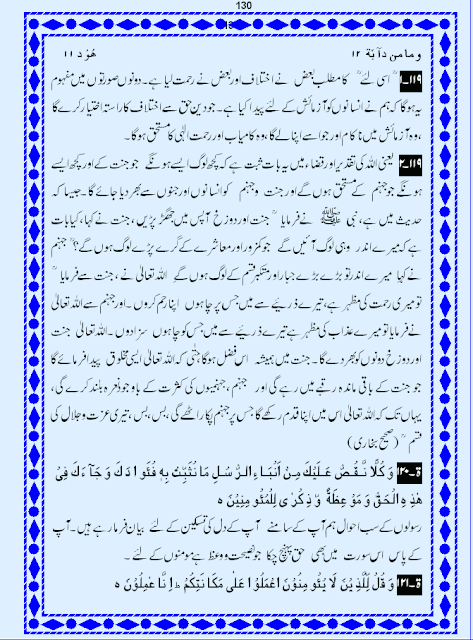 130
وما من دآبة ۱۲ ھُوْد ۱۱
۱۱۹۔۱ اسی لئے" کا مطلب بعض نے اختلاف اور بعض نے رحمت لیا ہے۔ دونوں صورتوں میں مفہوم
یہ ہوگا کہ ہم نے انسانوں کو آزمائش کے لئے پیدا کیا ہے۔ جو دین حق سے اختلاف کا راستہ اختیار کرے گا
، وہ آزمائش میں ناکام اور جو اسے اپنا لے گا، وہ کامیاب اور رحمت الٰہی کا مستحق ہوگا۔
۱۱۹۔۲ یعنی اللہ کی تقدیر اور قضاء میں یہ بات ثبت ہے کہ کچھ لوگ ایسے ہونگے جو جنت کے اور کچھ ایسے
ہونگے جو جہنم کے مستحق ہوں گے اور جنت و جہنم کو انسانوں اور جنوں سے بھر دیا جائے گا۔ جیسا کہ
حدیث میں ہے، نبی ﷺ نے فرمایا " جنت اور دوزخ آپس میں جھگڑ پڑیں، جنت نے کہا، کیا بات
ہے کہ میرے اندر وہی لوگ آئیں گے جو کمزور اور معاشرے کے گرے پڑے لوگ ہوں گے؟" جہنم
نے کہا میرے اندر تو بڑے بڑے جبار اور متکبر قسم کے لوگ ہوں گے اللہ تعالٰی نے، جنت سے فرمایا "
تو میری رحمت کی مظہر ہے، تیرے ذریعے سے میں جس پر چاہوں اپنا رحم کروں۔ اور جہنم سے اللہ تعالٰی
نے فرمایا تو میرے عذاب کی مظہر ہے تیرے ذریعے سے میں جس کو چاہوں سزا دوں۔ اللہ تعالٰی جنت
اور دوزخ دونوں کو بھر دے گا۔ جنت میں ہمیشہ اس فضل ہوگا حتیٰ کہ اللہ تعالٰی ایسی مخلوق پیدا فرمائے گا
جو جنت کے باقی ماندہ رقبے میں رہے گی اور جہنم، جہنمیوں کی کثرت کے باوجود نعرہ بلند کرے گی،
یہاں تک کہ اللہ تعالٰی اس میں اپنا قدم رکھے گا جس پر جہنم پکار اٹھے گی، بس، بس، تیری عزت و جلال کی
قسم " (صحیح بخاری)
ۃ۔۱۲۰ وَ کُلًّا نَّقُصُّ عَلَیْکَ مِنْ اَنْبَآءِ الرُّسُلِ مَا نُثَبِّتُ بِهٖ فُئَوادَکَ وَ جَآءَکَ فِیْ
هٰذِهِ الْحَقُّ وَ مَوْعِظَةٌ وَّ ذِکْرٰی لِلْمُئْو مِنِیْنَ ہ
رسولوں کے سب احوال ہم آپ کے سامنے آپ کے دل کی تسکین کے لئے بیان فرما رہے ہیں۔ آپ
کے پاس اس سورت میں بھی حق پہنچ چکا جو نصیحت و وعظ ہے مومنوں کے لئے۔
ۃ۔۱۲۱ وَ قُلْ لِّلَّذِیْنَ لَا یُئْو مِنُوْنَ اعْمَلُوْا عَلٰی مَکَانَتِکُمْ ط اِنَّا عٰمِلُوْنَ ہ